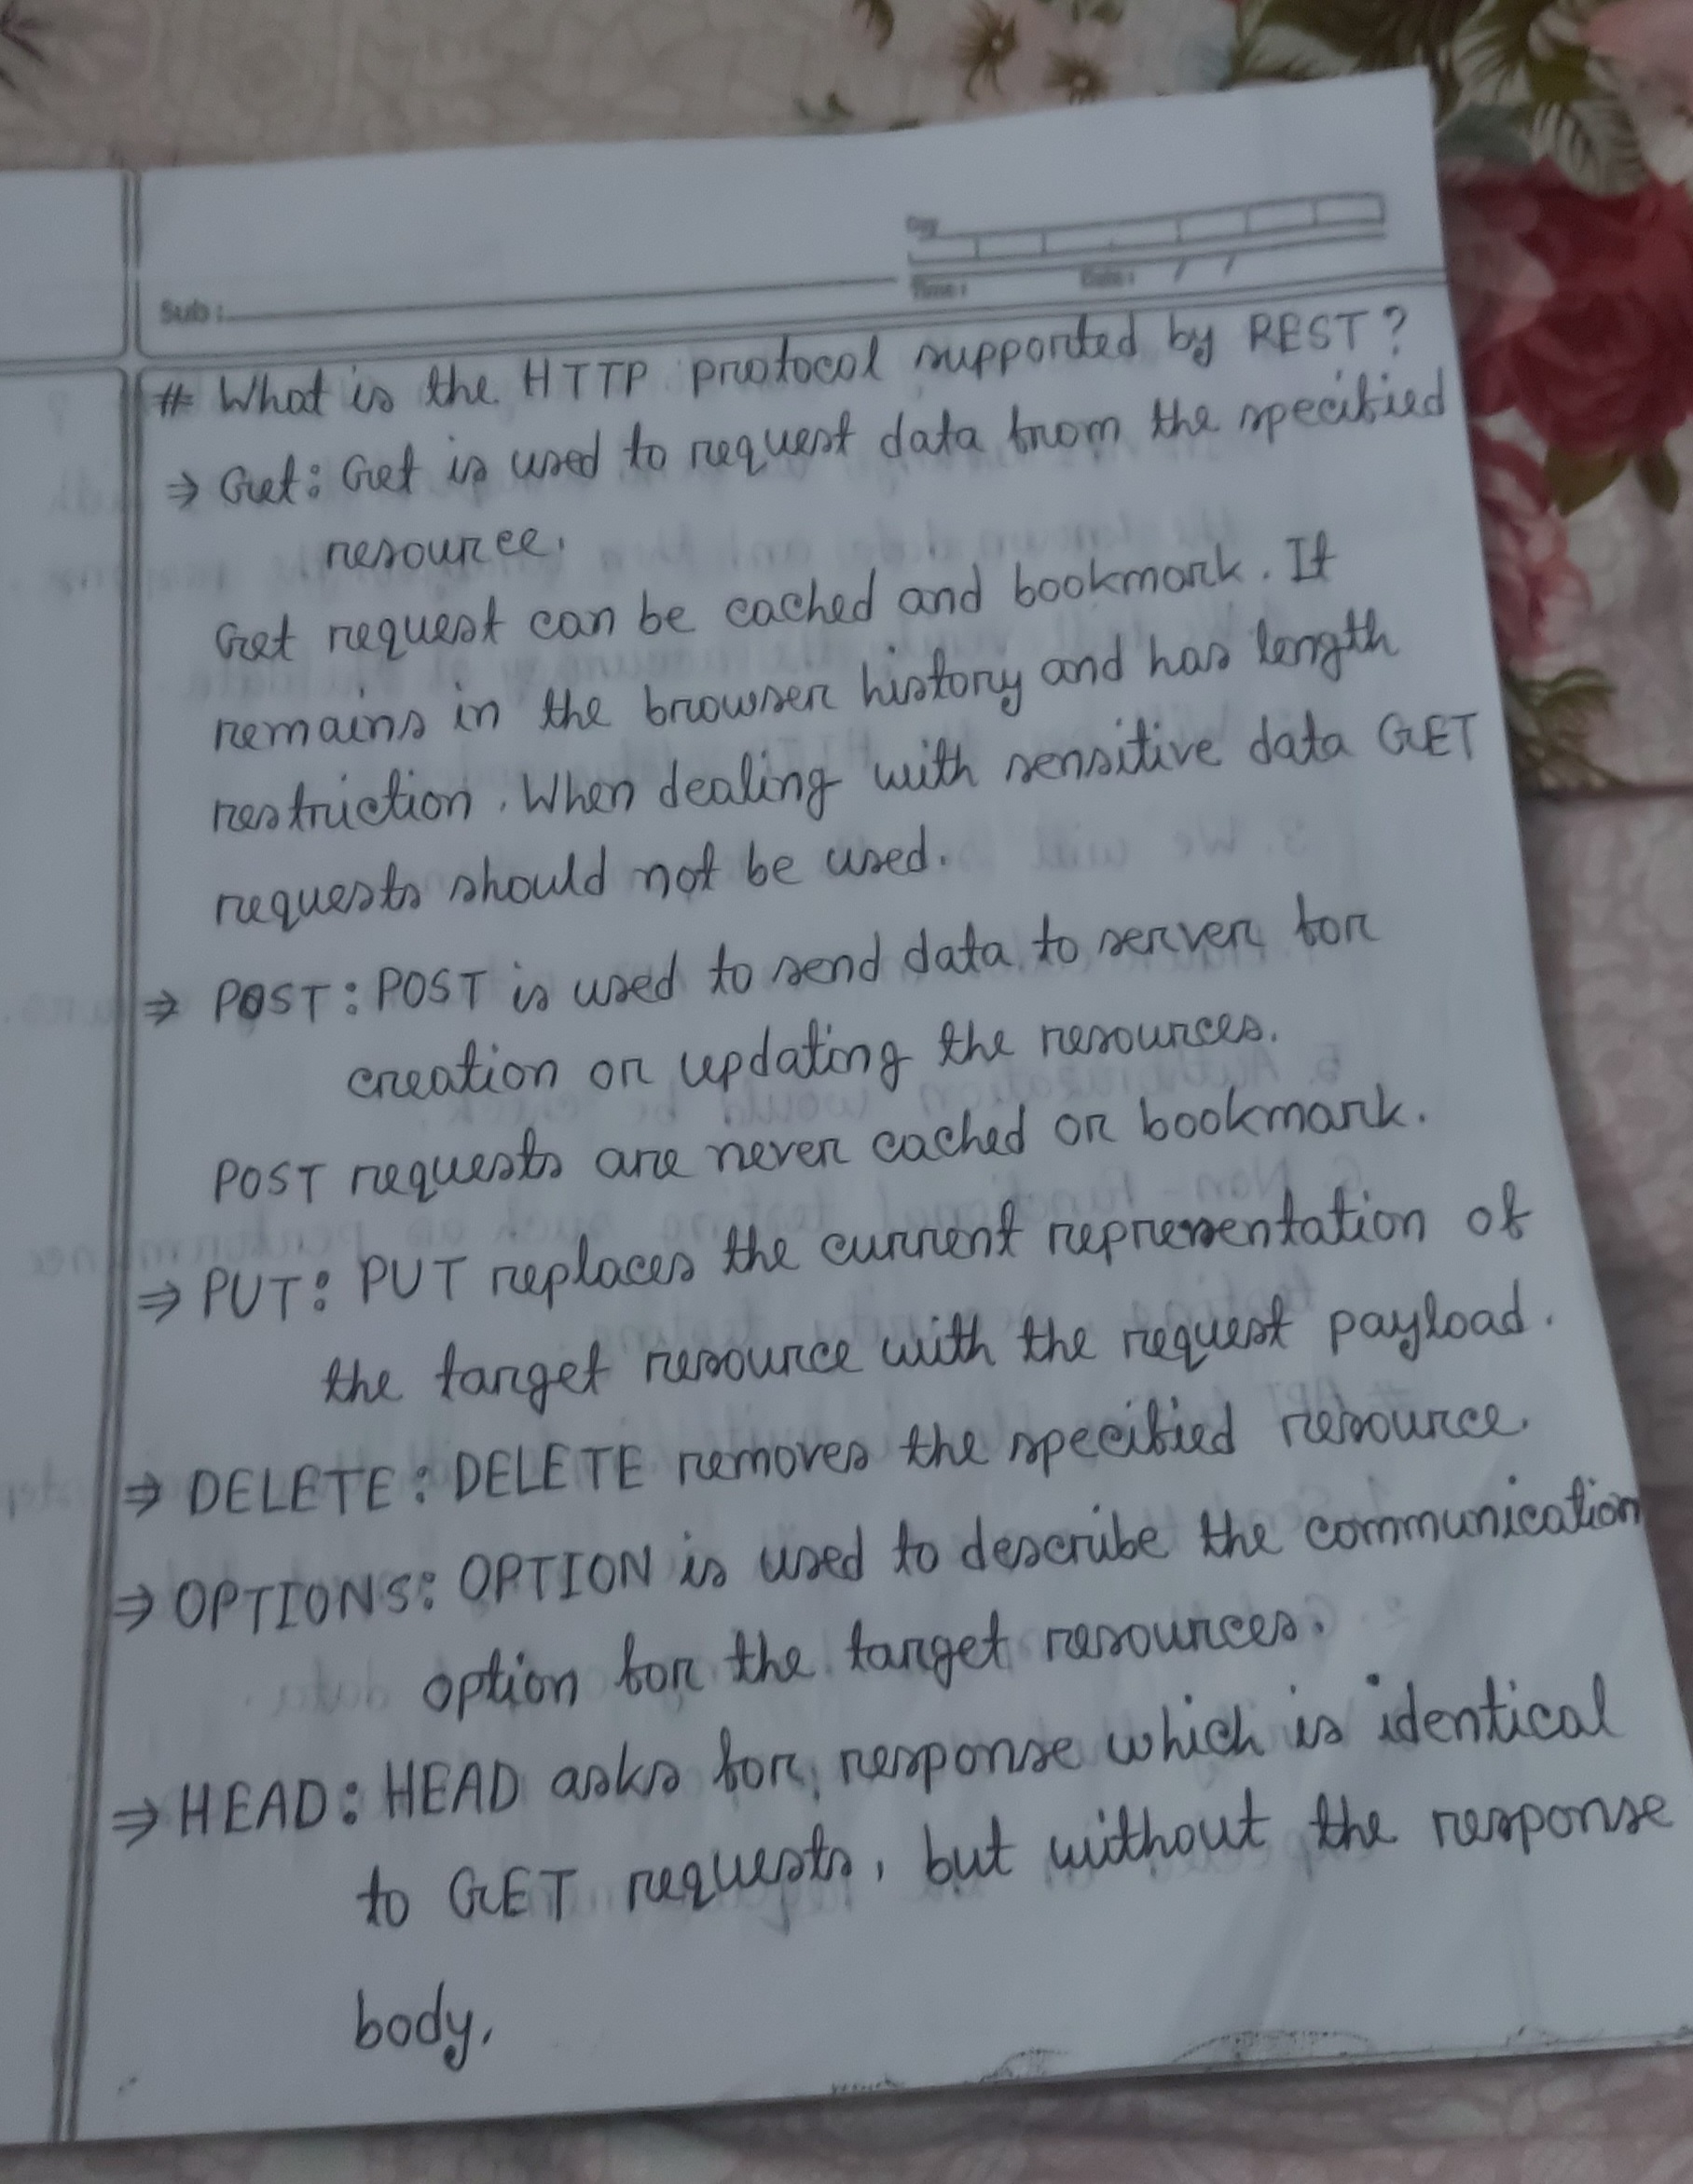 Day
Time :
Date : / /
Sub :
# What is the HTTP protocol supported by REST?
⇒ Get: Get is used to request data from the specified
resource.
Get request can be cached and bookmark. It
remains in the browser history and has length
restriction. When dealing with sensitive data GET
requests should not be used.
⇒ POST: POST is used to send data to server for
creation or updating the resources.
POST requests are never cached or bookmark.
⇒ PUT: PUT replaces the current representation of
the target resource with the request payload.
⇒ DELETE: DELETE removes the specified resource.
⇒ OPTIONS: OPTION is used to describe the communication
option for the target resources.
⇒ HEAD: HEAD asks for response which is identical
to GET requests, but without the response
body.